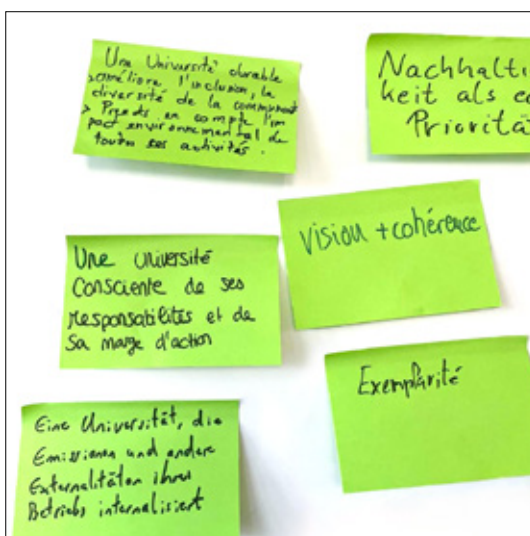 Une Université durable
> améliore l'inclusion, la
diversité de la communauté
> Prends en compte l'im
pact environnemental de
toutes ses activités.
Nachhalti
keit als
Priorität
Vision + cohérence
Une Université
Consciente de ses
responsabilités et de
Sa marge d'action
Exemplarité
Eine Universität, die
Emissionen und andere
Externalitäten ihres
Betriebs internalisiert